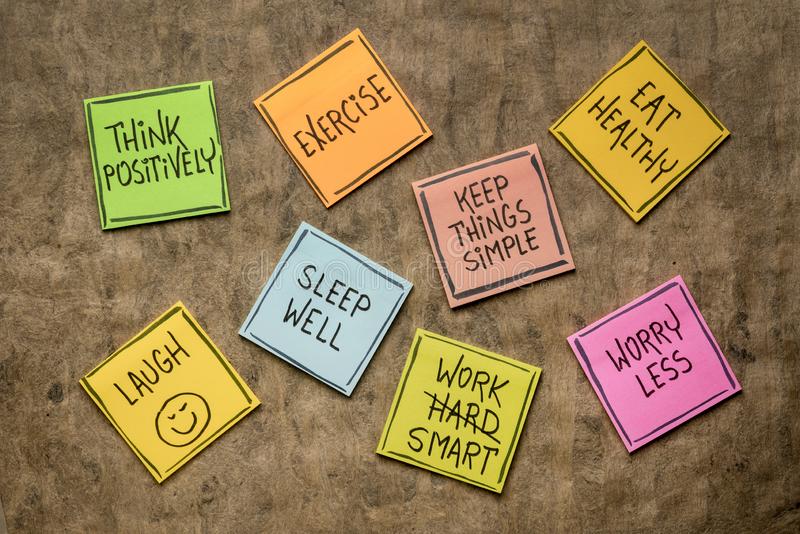 THINK
POSITIVELY
EXERCISE
EAT
HEALTHY
KEEP
THINGS
SIMPLE
SLEEP
WELL
WORRY
LESS
LAUGH
WORK
HARD
SMART
dreamstime